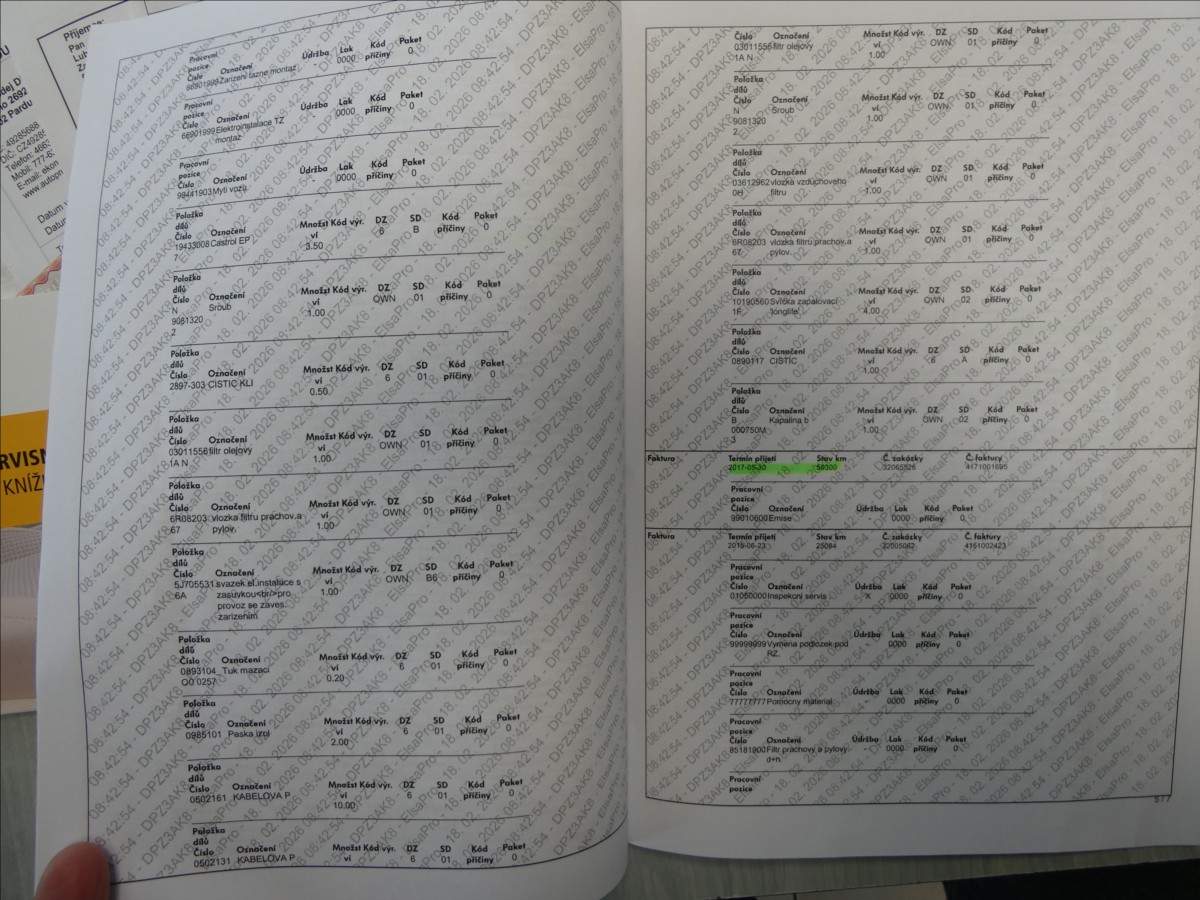 Příjemce:
Pan
49285688
Telefon:
Mobil: 777-6
E-mail: ekon
Datum
RVISN
KNÍŽ
Pracovní
pozice
Číslo Označení Údržba Lak Kód Paket
66901999 Zarizeni tazne montaz - 0000 příčiny 0
Pracovní
pozice
Číslo Označení Údržba Lak Kód Paket
66901999 Elektroinstalace TZ - 0000 příčiny 0
montaz
Pracovní
pozice
Číslo Označení Údržba Lak Kód Paket
99441903 Myti vozu - 0000 příčiny 0
Položka
dílů
Číslo Označení Množst Kód výr. DZ SD Kód Paket
19433008 Castrol EP ví 6 B příčiny 0
7 3.50
Položka
dílů
Číslo Označení Množst Kód výr. DZ SD Kód Paket
N Sroub ví OWN 01 příčiny 0
9081320 1.00
2
Položka
dílů
Číslo Označení Množst Kód výr. DZ SD Kód Paket
2897-303 CISTIC KLI ví 6 01 příčiny 0
0.50
Položka
dílů
Číslo Označení Množst Kód výr. DZ SD Kód Paket
03011556 filtr olejovy ví OWN 01 příčiny 0
1A N 1.00
Položka
dílů
Číslo Označení Množst Kód výr. DZ SD Kód Paket
6R08203 vlozka filtru prachov.a ví OWN 01 příčiny 0
67 pylov. 1.00
Položka
dílů
Číslo Označení Množst Kód výr. DZ SD Kód Paket
5J705531 svazek el.instalace s ví OWN B6 příčiny 0
6A zasuvkou<br/>pro 1.00
provoz se zaves.
zarizenim
Položka
dílů
Číslo Označení Množst Kód výr. DZ SD Kód Paket
0893104 Tuk mazaci ví 6 01 příčiny 0
O0 0257 0.20
Položka
dílů
Číslo Označení Množst Kód výr. DZ SD Kód Paket
0985101 Paska izol ví 6 01 příčiny 0
2.00
Položka
dílů
Číslo Označení Množst Kód výr. DZ SD Kód Paket
0502161 KABELOVA P ví 6 01 příčiny 0
10.00
Položka
dílů
Číslo Označení Množst Kód výr. DZ SD Kód Paket
0502131 KABELOVA P ví 6 01 příčiny 0
Číslo Označení Množst Kód výr. DZ SD Kód Paket
03011556 filtr olejovy ví OWN 01 příčiny 0
1A N 1.00
Položka
dílů
Číslo Označení Množst Kód výr. DZ SD Kód Paket
N Sroub ví OWN 01 příčiny 0
9081320 1.00
2
Položka
dílů
Číslo Označení Množst Kód výr. DZ SD Kód Paket
03612962 vlozka vzduchoveho ví OWN 01 příčiny 0
0H filtru 1.00
Položka
dílů
Číslo Označení Množst Kód výr. DZ SD Kód Paket
6R08203 vlozka filtru prachov.a ví OWN 01 příčiny 0
67 pylov. 1.00
Položka
dílů
Číslo Označení Množst Kód výr. DZ SD Kód Paket
10190560 Svicka zapalovaci ví OWN 02 příčiny 0
1F 'longlife' 4.00
Položka
dílů
Číslo Označení Množst Kód výr. DZ SD Kód Paket
0890117 CISTIC ví 6 A příčiny 0
1.00
Položka
dílů
Číslo Označení Množst Kód výr. DZ SD Kód Paket
B Kapalina b ví OWN 02 příčiny 0
000750M 1.00
3
Faktura Termín přijetí Stav km Č. zakázky Č. faktury
2017-05-30 58300 32065326 4171001695
Pracovní
pozice
Číslo Označení Údržba Lak Kód Paket
99010600 Emise - 0000 příčiny 0
Faktura Termín přijetí Stav km Č. zakázky Č. faktury
25084 32005062 4161002423
Pracovní
pozice
Číslo Označení Údržba Lak Kód Paket
01050000 Inspekcni servis X 0000 příčiny 0
Pracovní
pozice
Číslo Označení Údržba Lak Kód Paket
99999999 Vymena podlozek pod - 0000 příčiny 0
RZ.
Pracovní
pozice
Číslo Označení Údržba Lak Kód Paket
77777777 Pomocny material - 0000 příčiny 0
Pracovní
pozice
Číslo Označení Údržba Lak Kód Paket
85181900 Filtr prachovy a pylovy - 0000 příčiny 0
d+n
Pracovní
pozice
5/7
18. 02. 2026 08:42:54 - DPZ3AK8 - ElsaPro